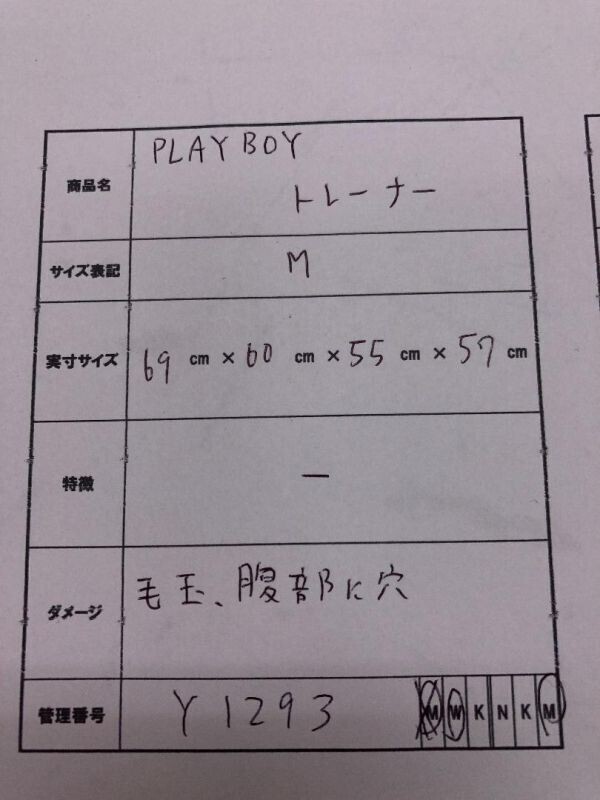 商品名 PLAY BOY
トレーナー
サイズ表記 M
実寸サイズ 69 cm × 60 cm × 55 cm × 57 cm
特徴 ー
ダメージ 毛玉、腹部に穴
管理番号 Y1293 M W K N K M